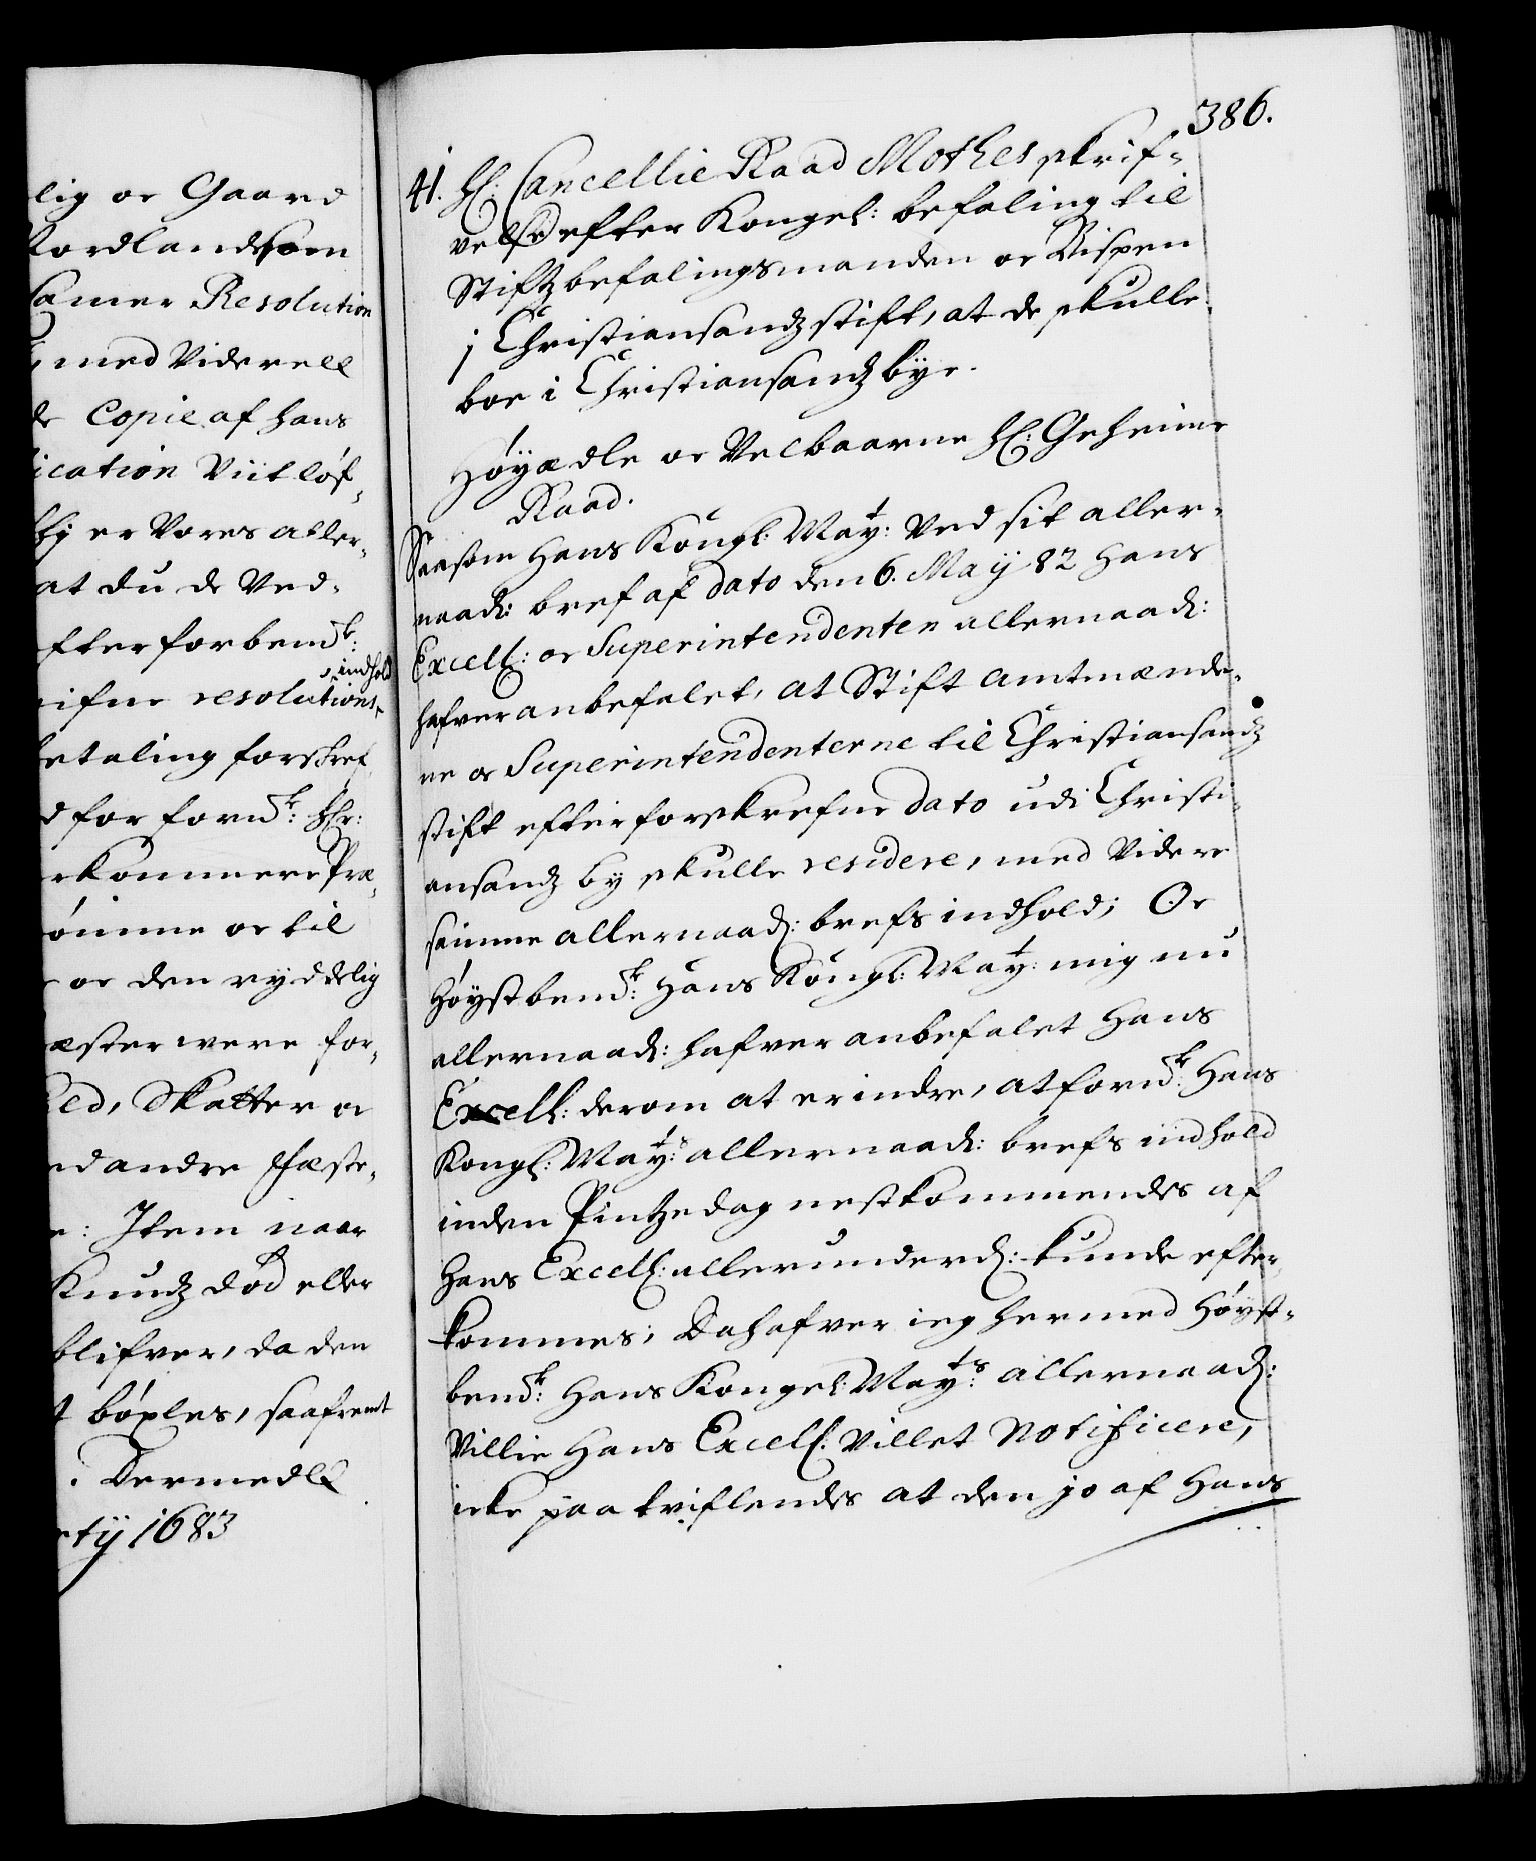 lig oc Gaard
Nordlandsom
Camer Resolution
, med Videre ell
de Copie af hans
ication Viitløf-
hj er Vores aller-
at du de Ved-
fter forbemt:
indhold
ifne resolutions
etaling forskref
d for fornt: Hr:
rkommere Præ-
ømme oc til
oc den ryddelig
æster were for-
led, Skatter oc
nd andre fæste-
e: Item naar
Knudz død eller
blifver, da den
t bøxles, saafremt
. Dermed
ty 1683
386.
41. H: Cancellie Raad Mothes skrif-
velse efter Kongel: befaling til
Stiftzbefalingsmanden oc Bispen
i Christiansandz stift, at de skulle
boe i Christiansandz bye.
Høyædle oc Velbaarne H: Geheime
Raad.
Saasom Hans Kongl: Mayt: Ved sit aller-
naad: bref af dato den 6. Maÿ 82 Hans
Excell: oc Superintendenten allernaad:
hafver anbefalet, at Stift amtmænde-
ne oc Superintendenterne til Christiansandz
stift efter forskrefne dato udi Christi-
ansandz by skulle residere, med Videre
samme allernaad: brefs indhold; Oc
Høystbemt: Hans Kongl: Mayt: mig nu
allernaad: hafver anbefalet Hans
Excell: derom at erindre, at fornt: Hans
Kongl: Mayts: allernaad: brefs indhold
inden Pintzedag nestkommendes af
Hans Excell: allerunderd: kunde efter-
kommes; Da hafver ieg hermed Høyst-
bemt: Hans Kongel: Mayts: allernaad:
Villie Hans Excell: Villet Notificere,
icke paa tviflendes at den jo af Hans